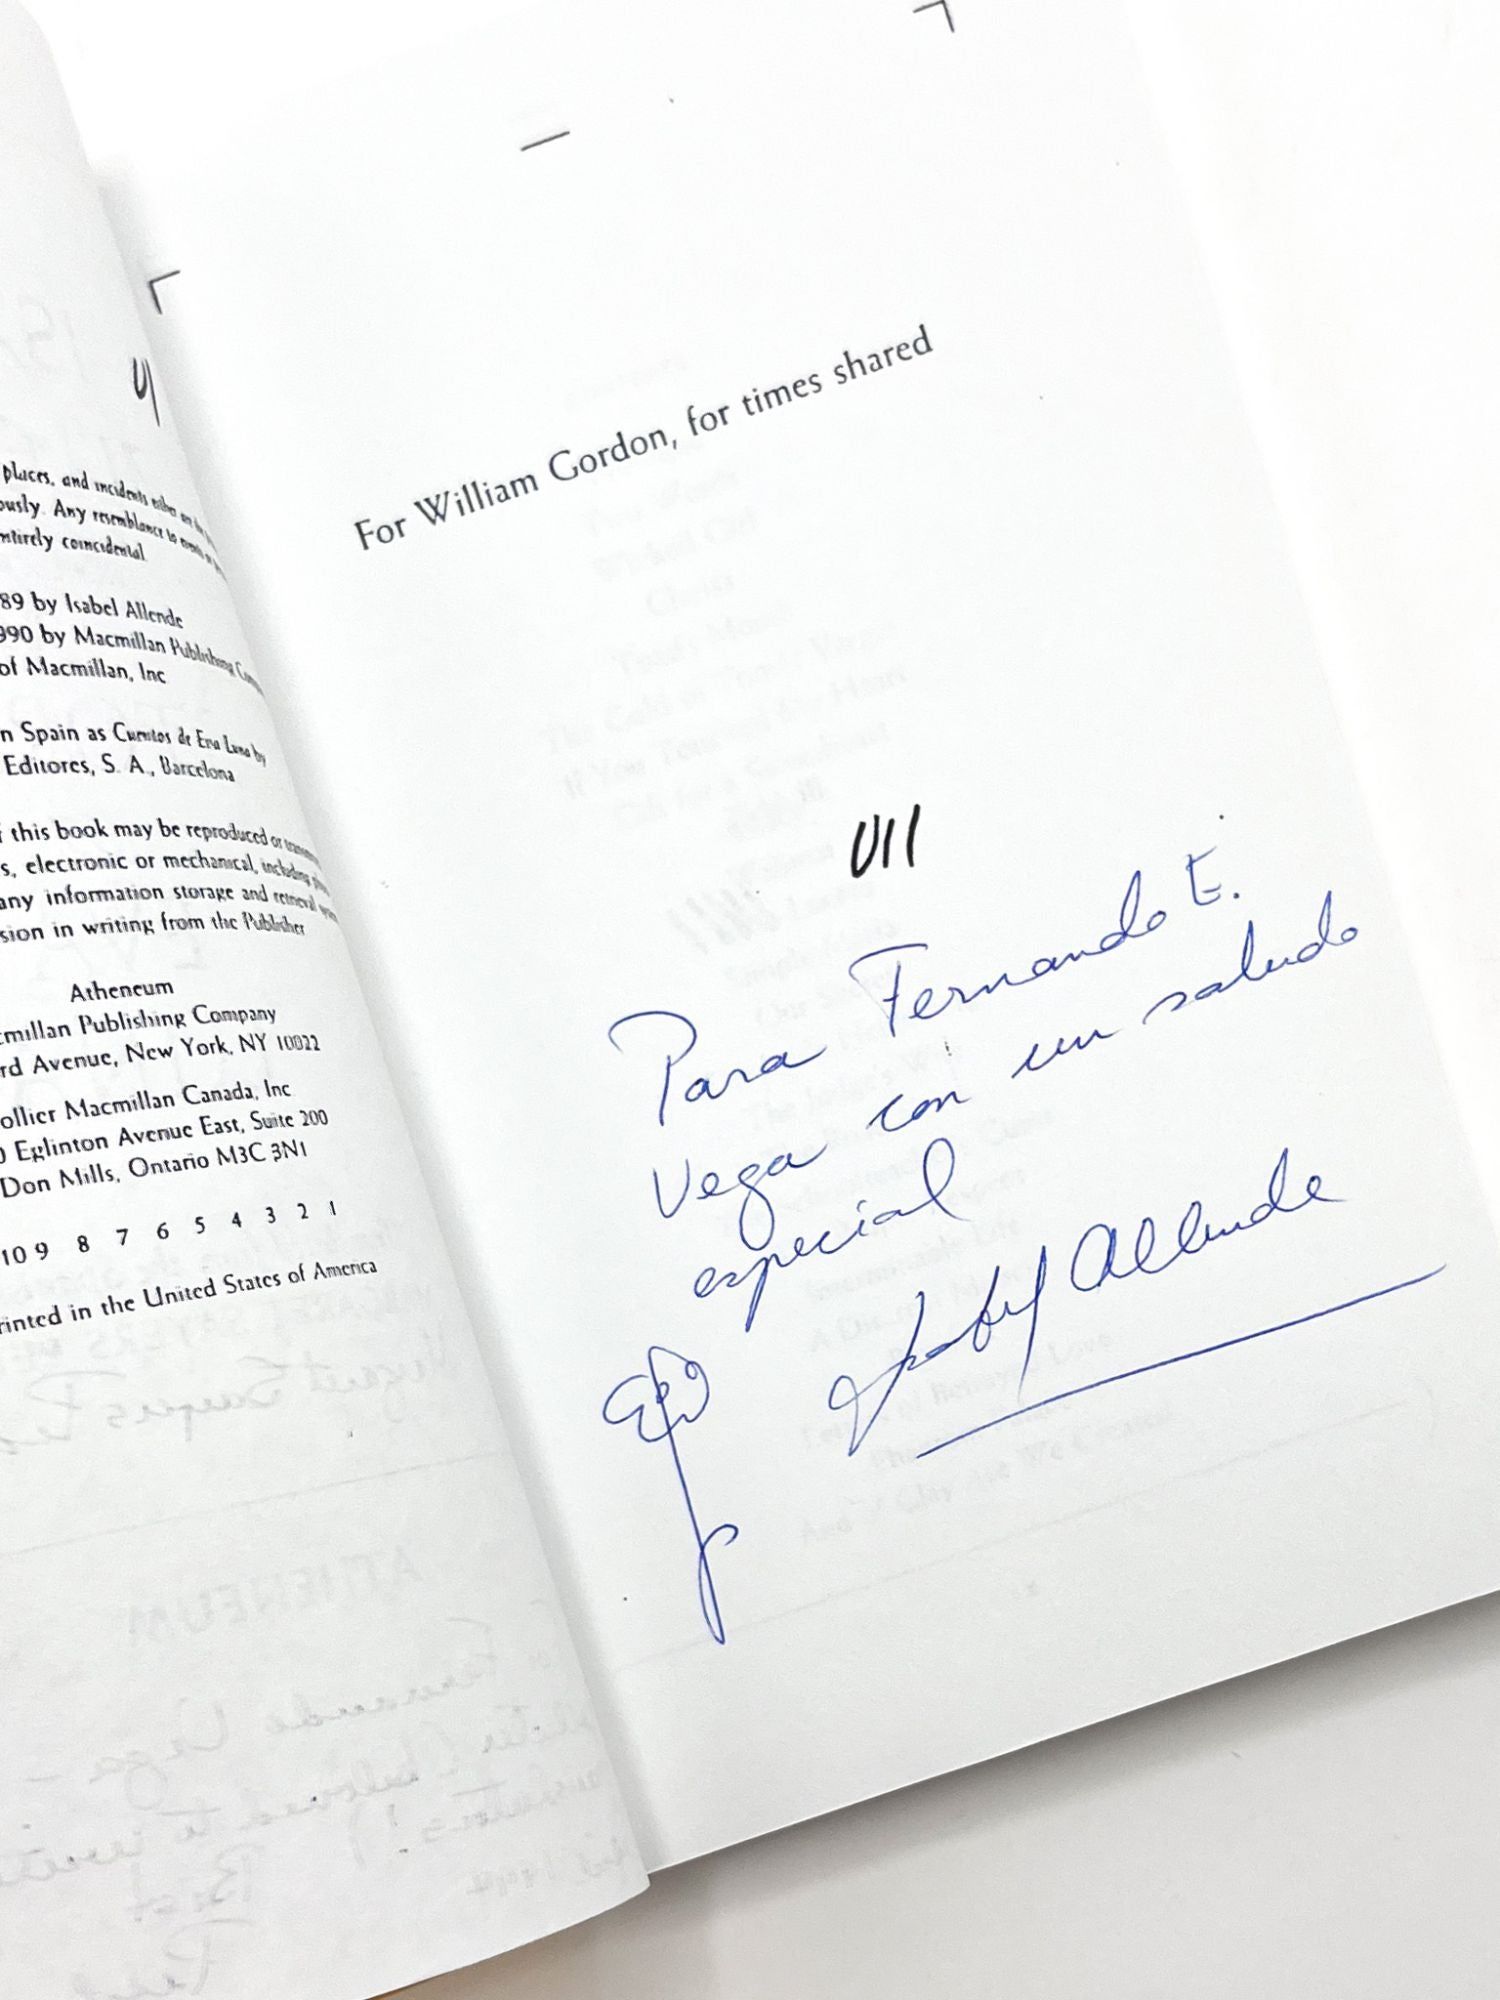 VI
places, and incidents either are the
ously. Any resemblance to events or
ntirely coincidental.
89 by Isabel Allende
990 by Macmillan Publishing Com
of Macmillan, Inc
n Spain as Cuentos de Eva Luna by
Editores, S. A., Barcelona
f this book may be reproduced or transm
s, electronic or mechanical, including pho
any information storage and retrieval system
sion in writing from the Publisher
Atheneum
cmillan Publishing Company
rd Avenue, New York, NY 10022
ollier Macmillan Canada, Inc
0 Eglinton Avenue East, Suite 200
Don Mills, Ontario M3C 3N1
10 9 8 7 6 5 4 3 2 1
rinted in the United States of America
For William Gordon, for times shared
VII
Para Fernando E.
Vega con un saludo
especial
Isabel Allende